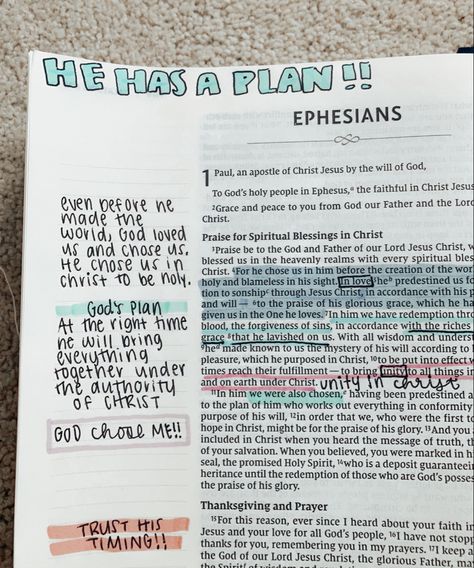 HE HAS A PLAN!!
EPHESIANS
even before he
made the
world, God loved
us and chose us.
He chose us in
christ to be holy.
God's Plan
At the right time
he will bring
everything
together under
the authority
OF CHRIST
GOD chose ME!!
TRUST HIS
TIMING!!
1 Paul, an apostle of Christ Jesus by the will of God,
To God's holy people in Ephesus,ª the faithful in Christ Jesus
²Grace and peace to you from God our Father and the Lord
Christ.
Praise for Spiritual Blessings in Christ
³Praise be to the God and Father of our Lord Jesus Christ, w
blessed us in the heavenly realms with every spiritual bless
Christ. ⁴For he chose us in him before the creation of the wor
holy and blameless in his sight. In love ⁵he predestined us fo
tion to sonship through Jesus Christ, in accordance with his p
and will — ⁶to the praise of his glorious grace, which he ha
given us in the One he loves. ⁷In him we have redemption thr
blood, the forgiveness of sins, in accordance with the riches
grace ⁸that he lavished on us. With all wisdom and underst
⁹he made known to us the mystery of his will according to
pleasure, which he purposed in Christ, ¹⁰to be put into effect w
times reach their fulfillment — to bring unity to all things in
and on earth under Christ. unity in christ
¹¹In him we were also chosen, having been predestined a
to the plan of him who works out everything in conformity
purpose of his will, ¹²in order that we, who were the first to
hope in Christ, might be for the praise of his glory. ¹³And you a
included in Christ when you heard the message of truth, th
of your salvation. When you believed, you were marked in hi
seal, the promised Holy Spirit, ¹⁴who is a deposit guaranteei
heritance until the redemption of those who are God's posses
the praise of his glory.
Thanksgiving and Prayer
¹⁵For this reason, ever since I heard about your faith in
Jesus and your love for all God's people, ¹⁶I have not stopp
thanks for you, remembering you in my prayers. ¹⁷I keep a
the God of our Lord Jesus Christ, the glorious Father, ma
the Spirit of wisdom and